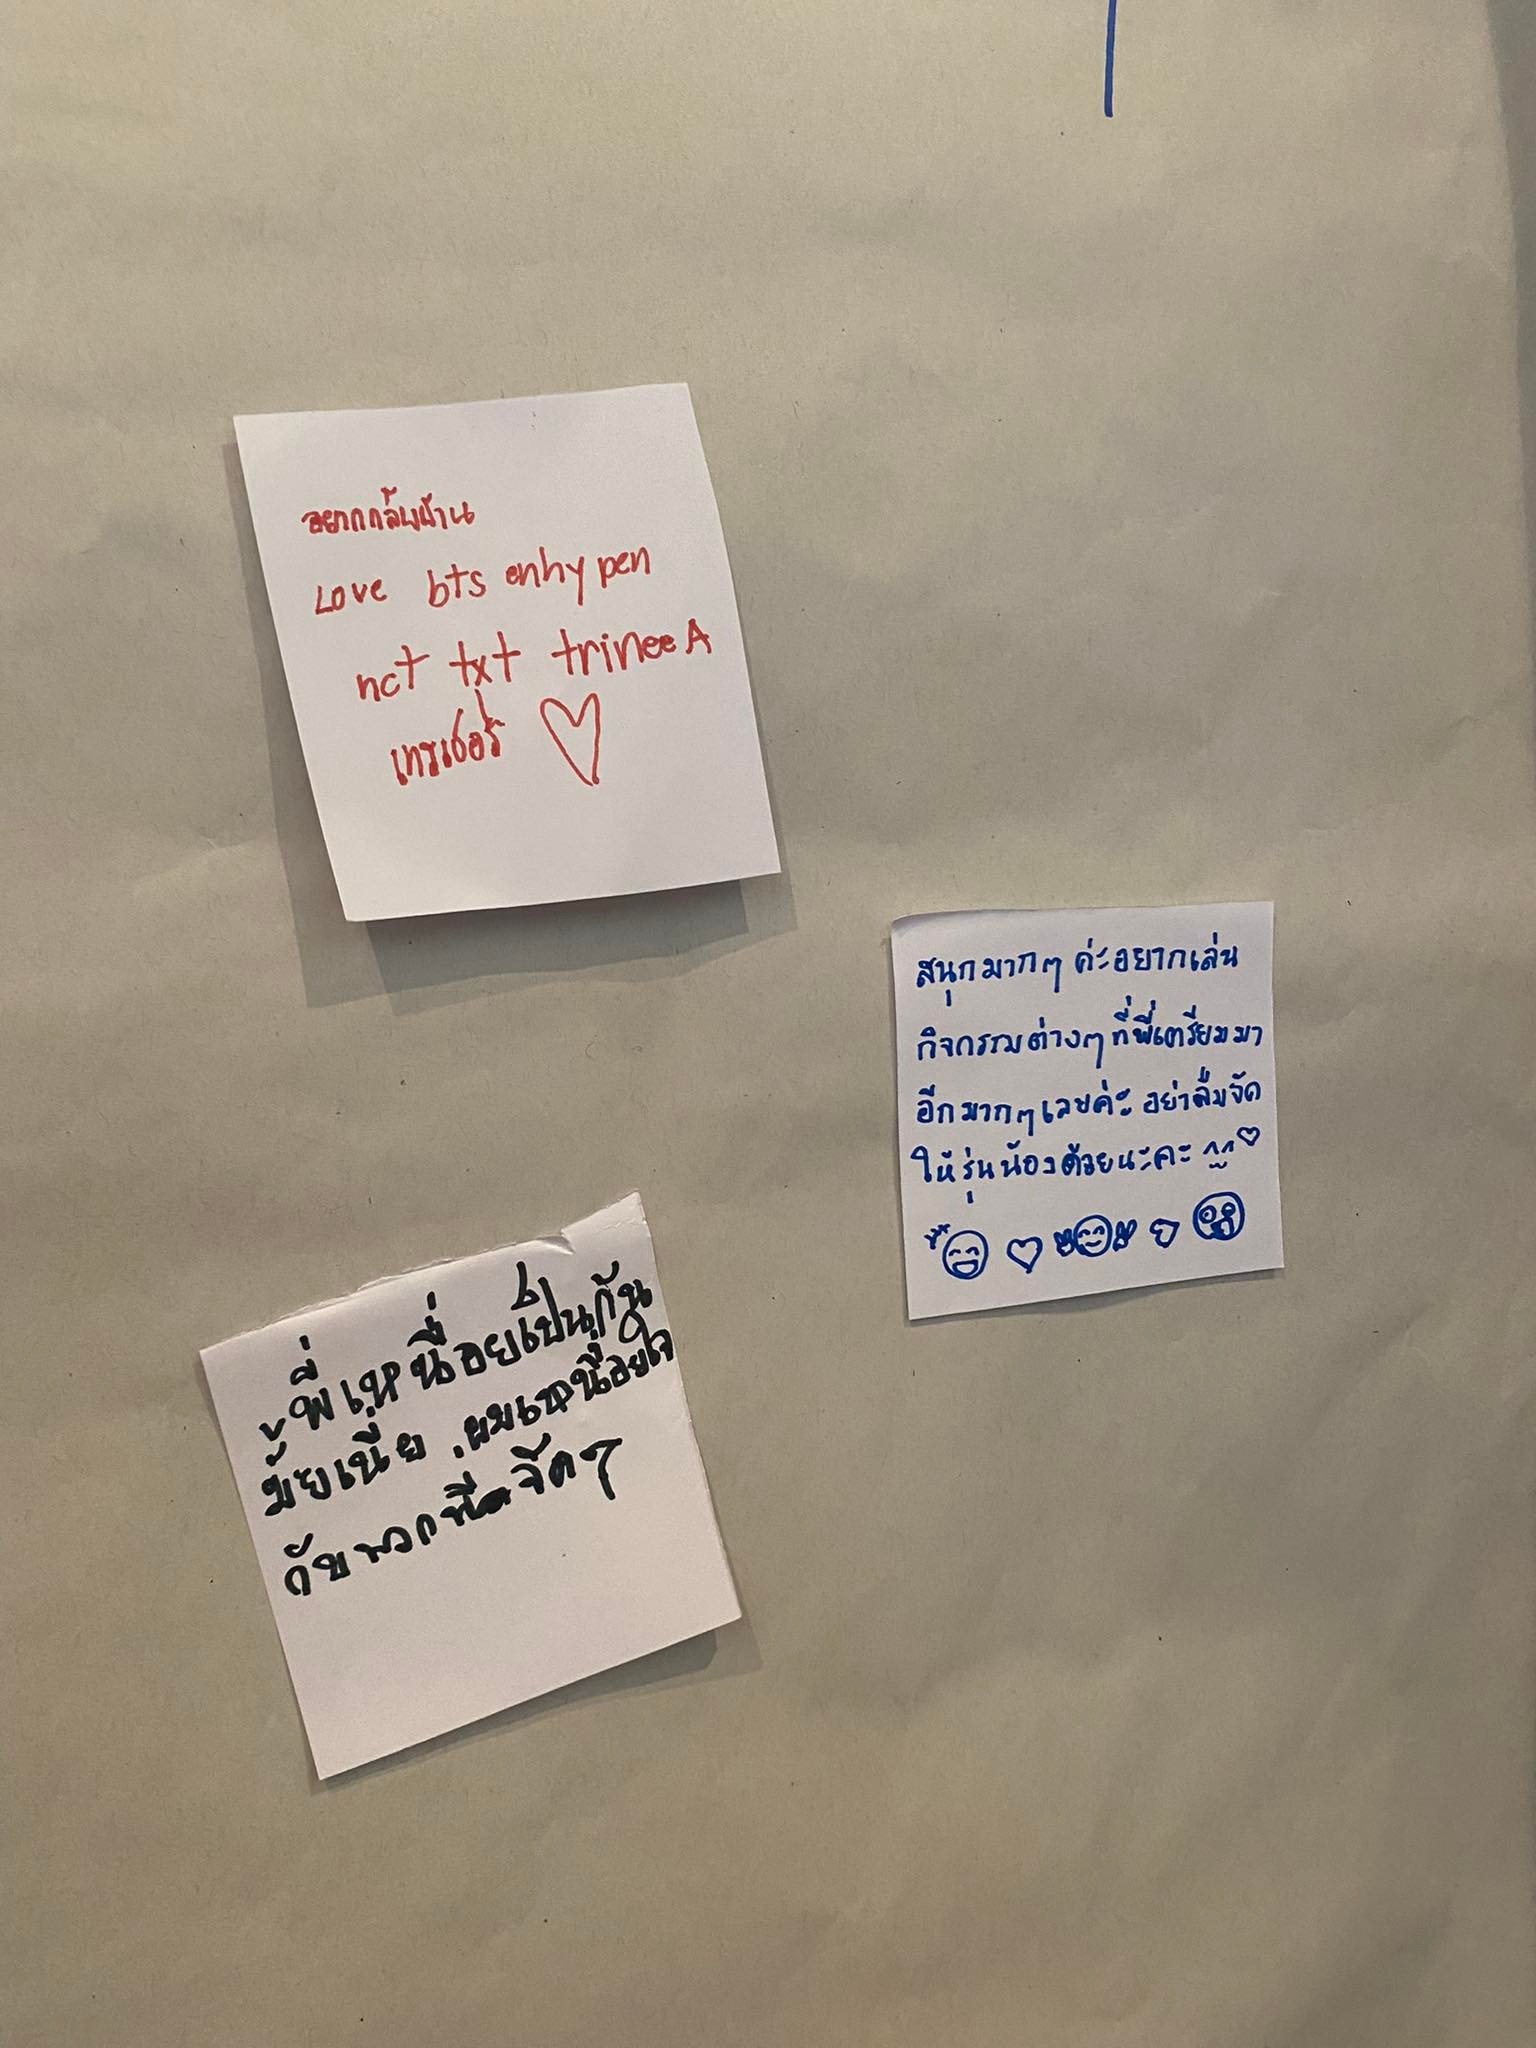 อยากกลับบ้าน
Love bts enhy pen
nct txt trineeA
เทรเชอร์
สนุกมากๆ ค่ะอยากเล่น
กิจกรรมต่างๆ ที่พี่เตรียมมา
อีกมากๆ เลยค่ะ อย่าลืมจัด
ให้รุ่นน้องด้วยนะคะ
พี่เหนื่อยเป็นกัน
มั้ยเนี่ย ผมเหนื่อยใจ
กับพวกพี่ จัดๆ